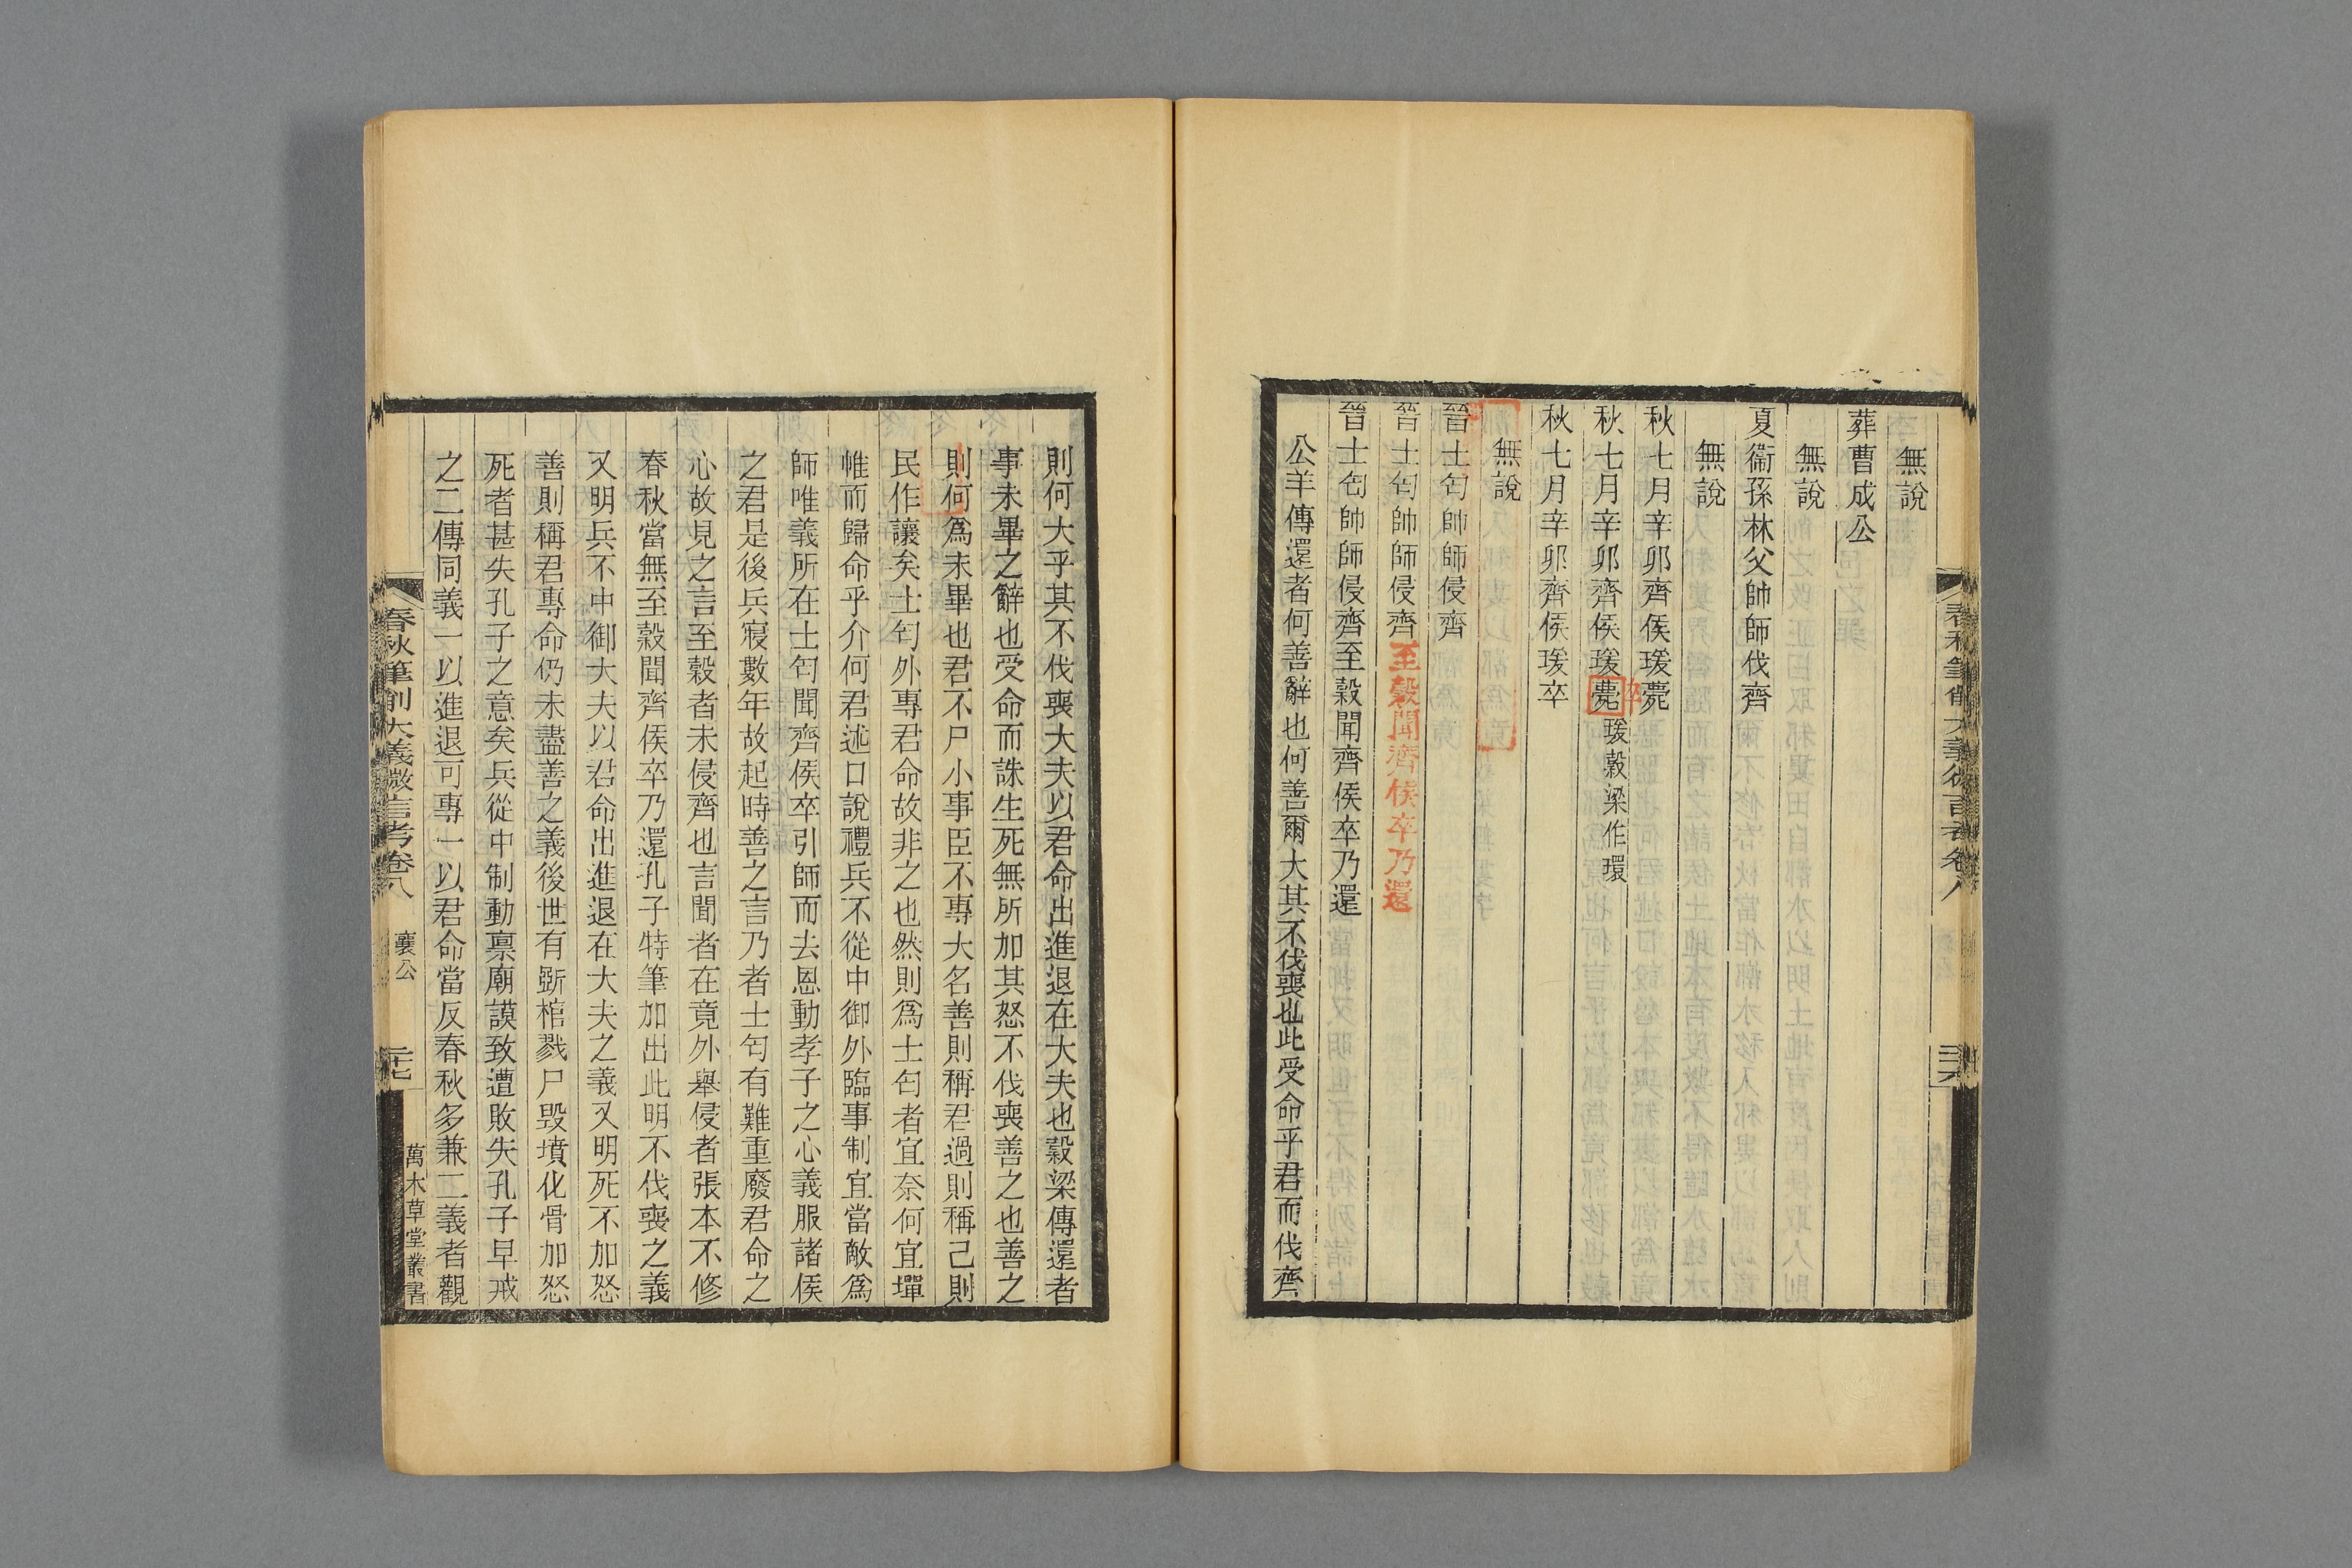 無說
葬曹成公
無說
夏衞孫林父帥師伐齊
無說
秋七月辛卯齊侯瑗薨
卒
秋七月辛卯齊侯瑗薨瑗穀梁作環
秋七月辛卯齊侯瑗卒
無說
晉士匄帥師侵齊
晉士匄帥師侵齊至穀聞齊侯卒乃還
晉士匄帥師侵齊至穀聞齊侯卒乃還
公羊傳還者何善辭也何善爾大其不伐喪也此受命乎君而伐齊
春秋筆削大義微言考卷八
二十六
則何大乎其不伐喪大夫以君命出進退在大夫也穀梁傳還者
事未畢之辭也受命而誅生死無所加其怒不伐喪善之也善之
則何爲未畢也君不尸小事臣不專大名善則稱君過則稱己則
民作讓矣士匄外專君命故非之也然則爲士匄者宜奈何宜墠
帷而歸命乎介何君述口說禮兵不從中御外臨事制宜當敵爲
師唯義所在士匄聞齊侯卒引師而去恩動孝子之心義服諸侯
之君是後兵寢數年故起時善之言乃者士匄有難重廢君命之
心故見之言至穀者未侵齊也言聞者在竟外舉侵者張本不修
春秋當無至穀聞齊侯卒乃還孔子特筆加出此明不伐喪之義
又明兵不中御大夫以君命出進退在大夫之義又明死不加怒
善則稱君專命仍未盡善之義後世有斵棺戮尸毀墳化骨加怒
死者甚失孔子之意矣兵從中制動禀廟謨致遭敗失孔子早戒
之二傳同義一以進退可專一以君命當反春秋多兼二義者觀
春秋筆削大義微言考卷八
襄公
二十七
萬木草堂叢書